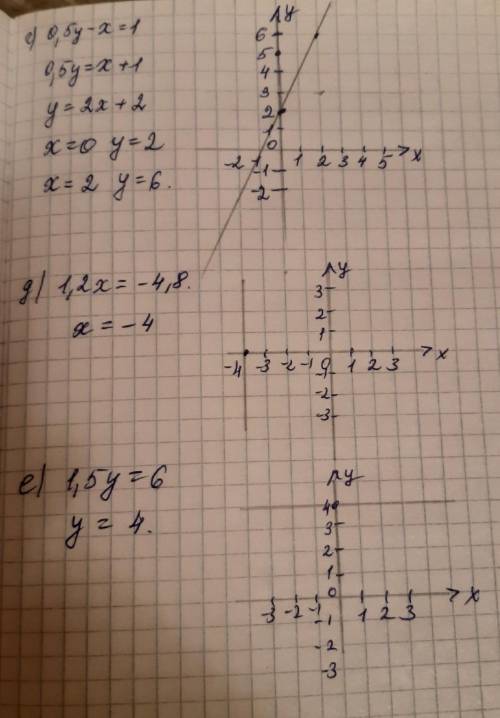 c) 0,5y-x=1
0,5y=x+1
y=2x+2
x=0 y=2
x=2 y=6.
y
6
5
4
3
2
1
0
-2 -1 1 2 3 4 5 x
-1
-2
g) 1,2x = -4,8.
x = -4
y
3
2
1
-4 -3 -2 -1 0 1 2 3 x
-1
-2
-3
e) 1,5y = 6
y = 4.
y
4
3
2
1
0
-3 -2 -1 1 2 3 x
-1
-2
-3